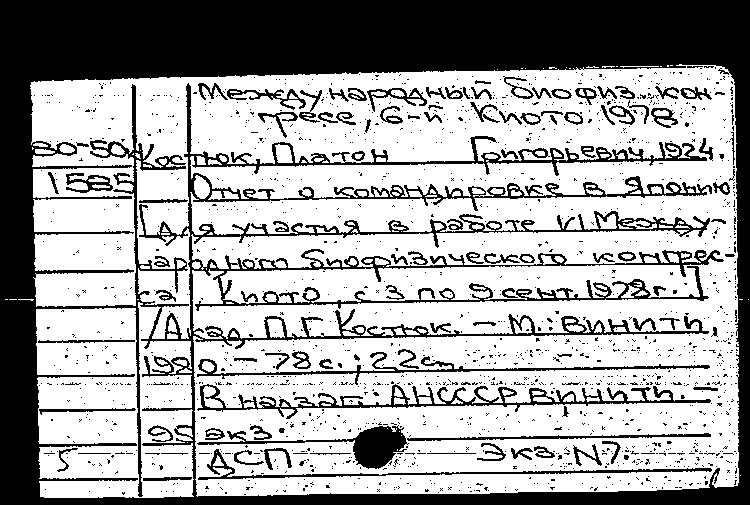 Международный биофиз. кон-
гресс, 6-й. Киото. 1978.
80-50к Костюк, Платон Григорьевич, 1924.
1585 Отчет о командировке в Японию
[для участия в работе VI Между-
народного биофизического конгрес-
са, Киото, с 3 по 9 сент. 1978г.]
/Акад. П.Г. Костюк. - М.: ВИНИТИ,
1980. - 78 с.; 22см.
В надзаг.: АНСССР, ВИНИТИ. -
95 экз.
5 ДСП. Экз. N7.